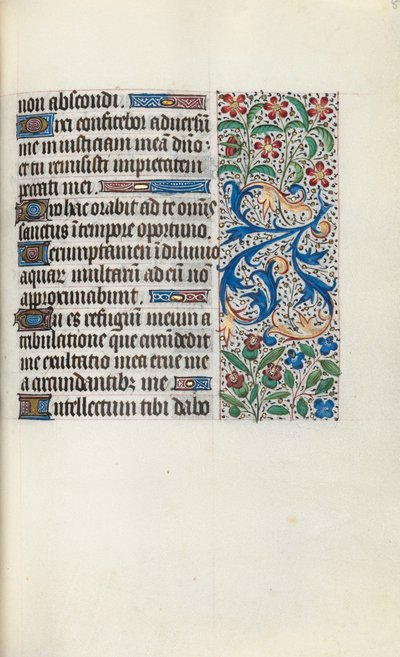 non abscondi.
Dixi confitebor adversū
me iniusticiam meā dño:
et tu remisisti impietatem
peccati mei.
Pro hac orabit ad te omīs
sanctus ī tempore oportuno.
Uerumptamen ī diluuio
aquaꝝ multarū ad eū nō
approximabunt.
Tu es refugiū meum a
tribulatione que circūdedit
me exultatio mea erue me
a circundantibꝫ me.
Intellectum tibi dabo